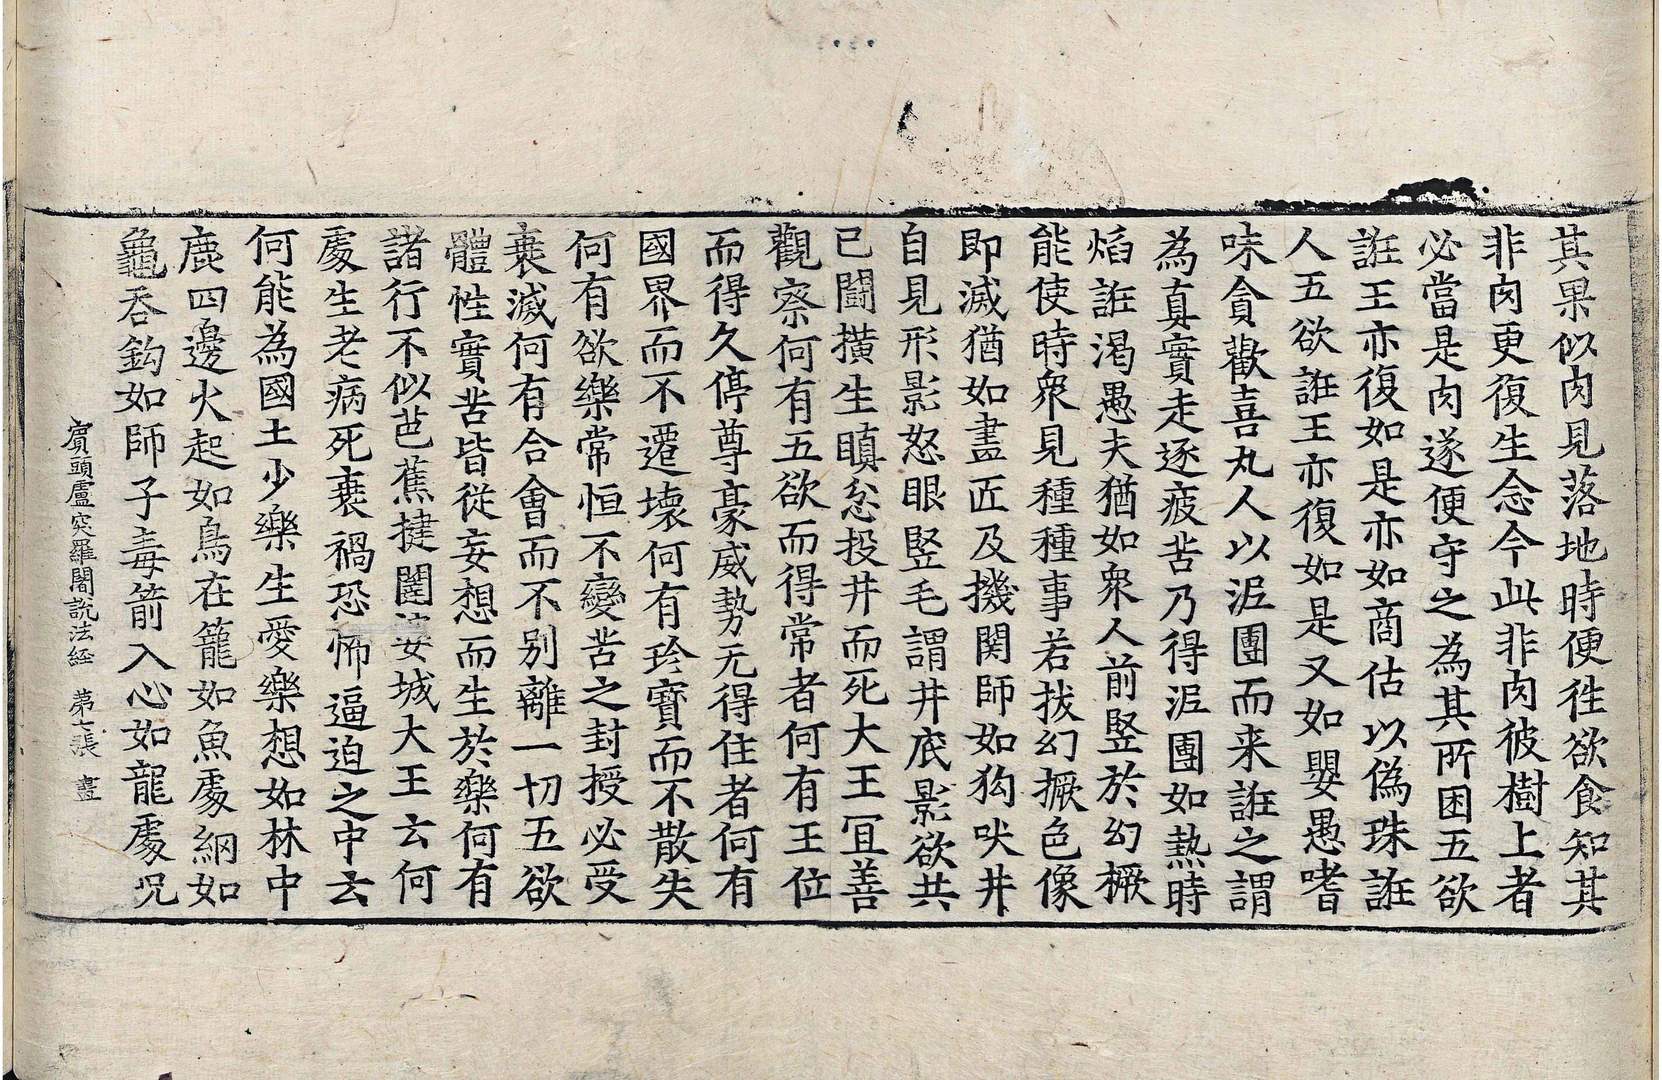 其果似肉見落地時便徃欲食知其
非肉更復生念今此非肉彼樹上者
必當是肉遂便守之為其所困五欲
誑王亦復如是亦如商估以偽珠誑
人五欲誑王亦復如是又如嬰愚嗜
味貪歡喜丸人以泥團而来誑之謂
為真實走逐疲苦乃得泥團如熱時
焰誑渴愚夫猶如衆人前竪於幻橛
能使時衆見種種事若拔幻橛色像
即滅猶如畫匠及機関師如狗吠井
自見形影怒眼竪毛謂井底影欲共
已鬪撗生瞋忿投井而死大王冝善
觀察何有五欲而得常者何有王位
而得久停尊豪威勢无得住者何有
國界而不遷壊何有珎寶而不散失
何有欲樂常恒不變苦之封授必受
衰滅何有合會而不别離一切五欲
體性實苦皆從妄想而生於樂何有
諸行不似芭蕉揵闥婆城大王云何
處生老病死衰禍恐怖逼迫之中云
何能為國土少樂生愛樂想如林中
鹿四邊火起如鳥在籠如魚處網如
龜吞鈎如師子毒箭入心如龍處呪
賔頭盧突羅闍說法經 第七張 畫